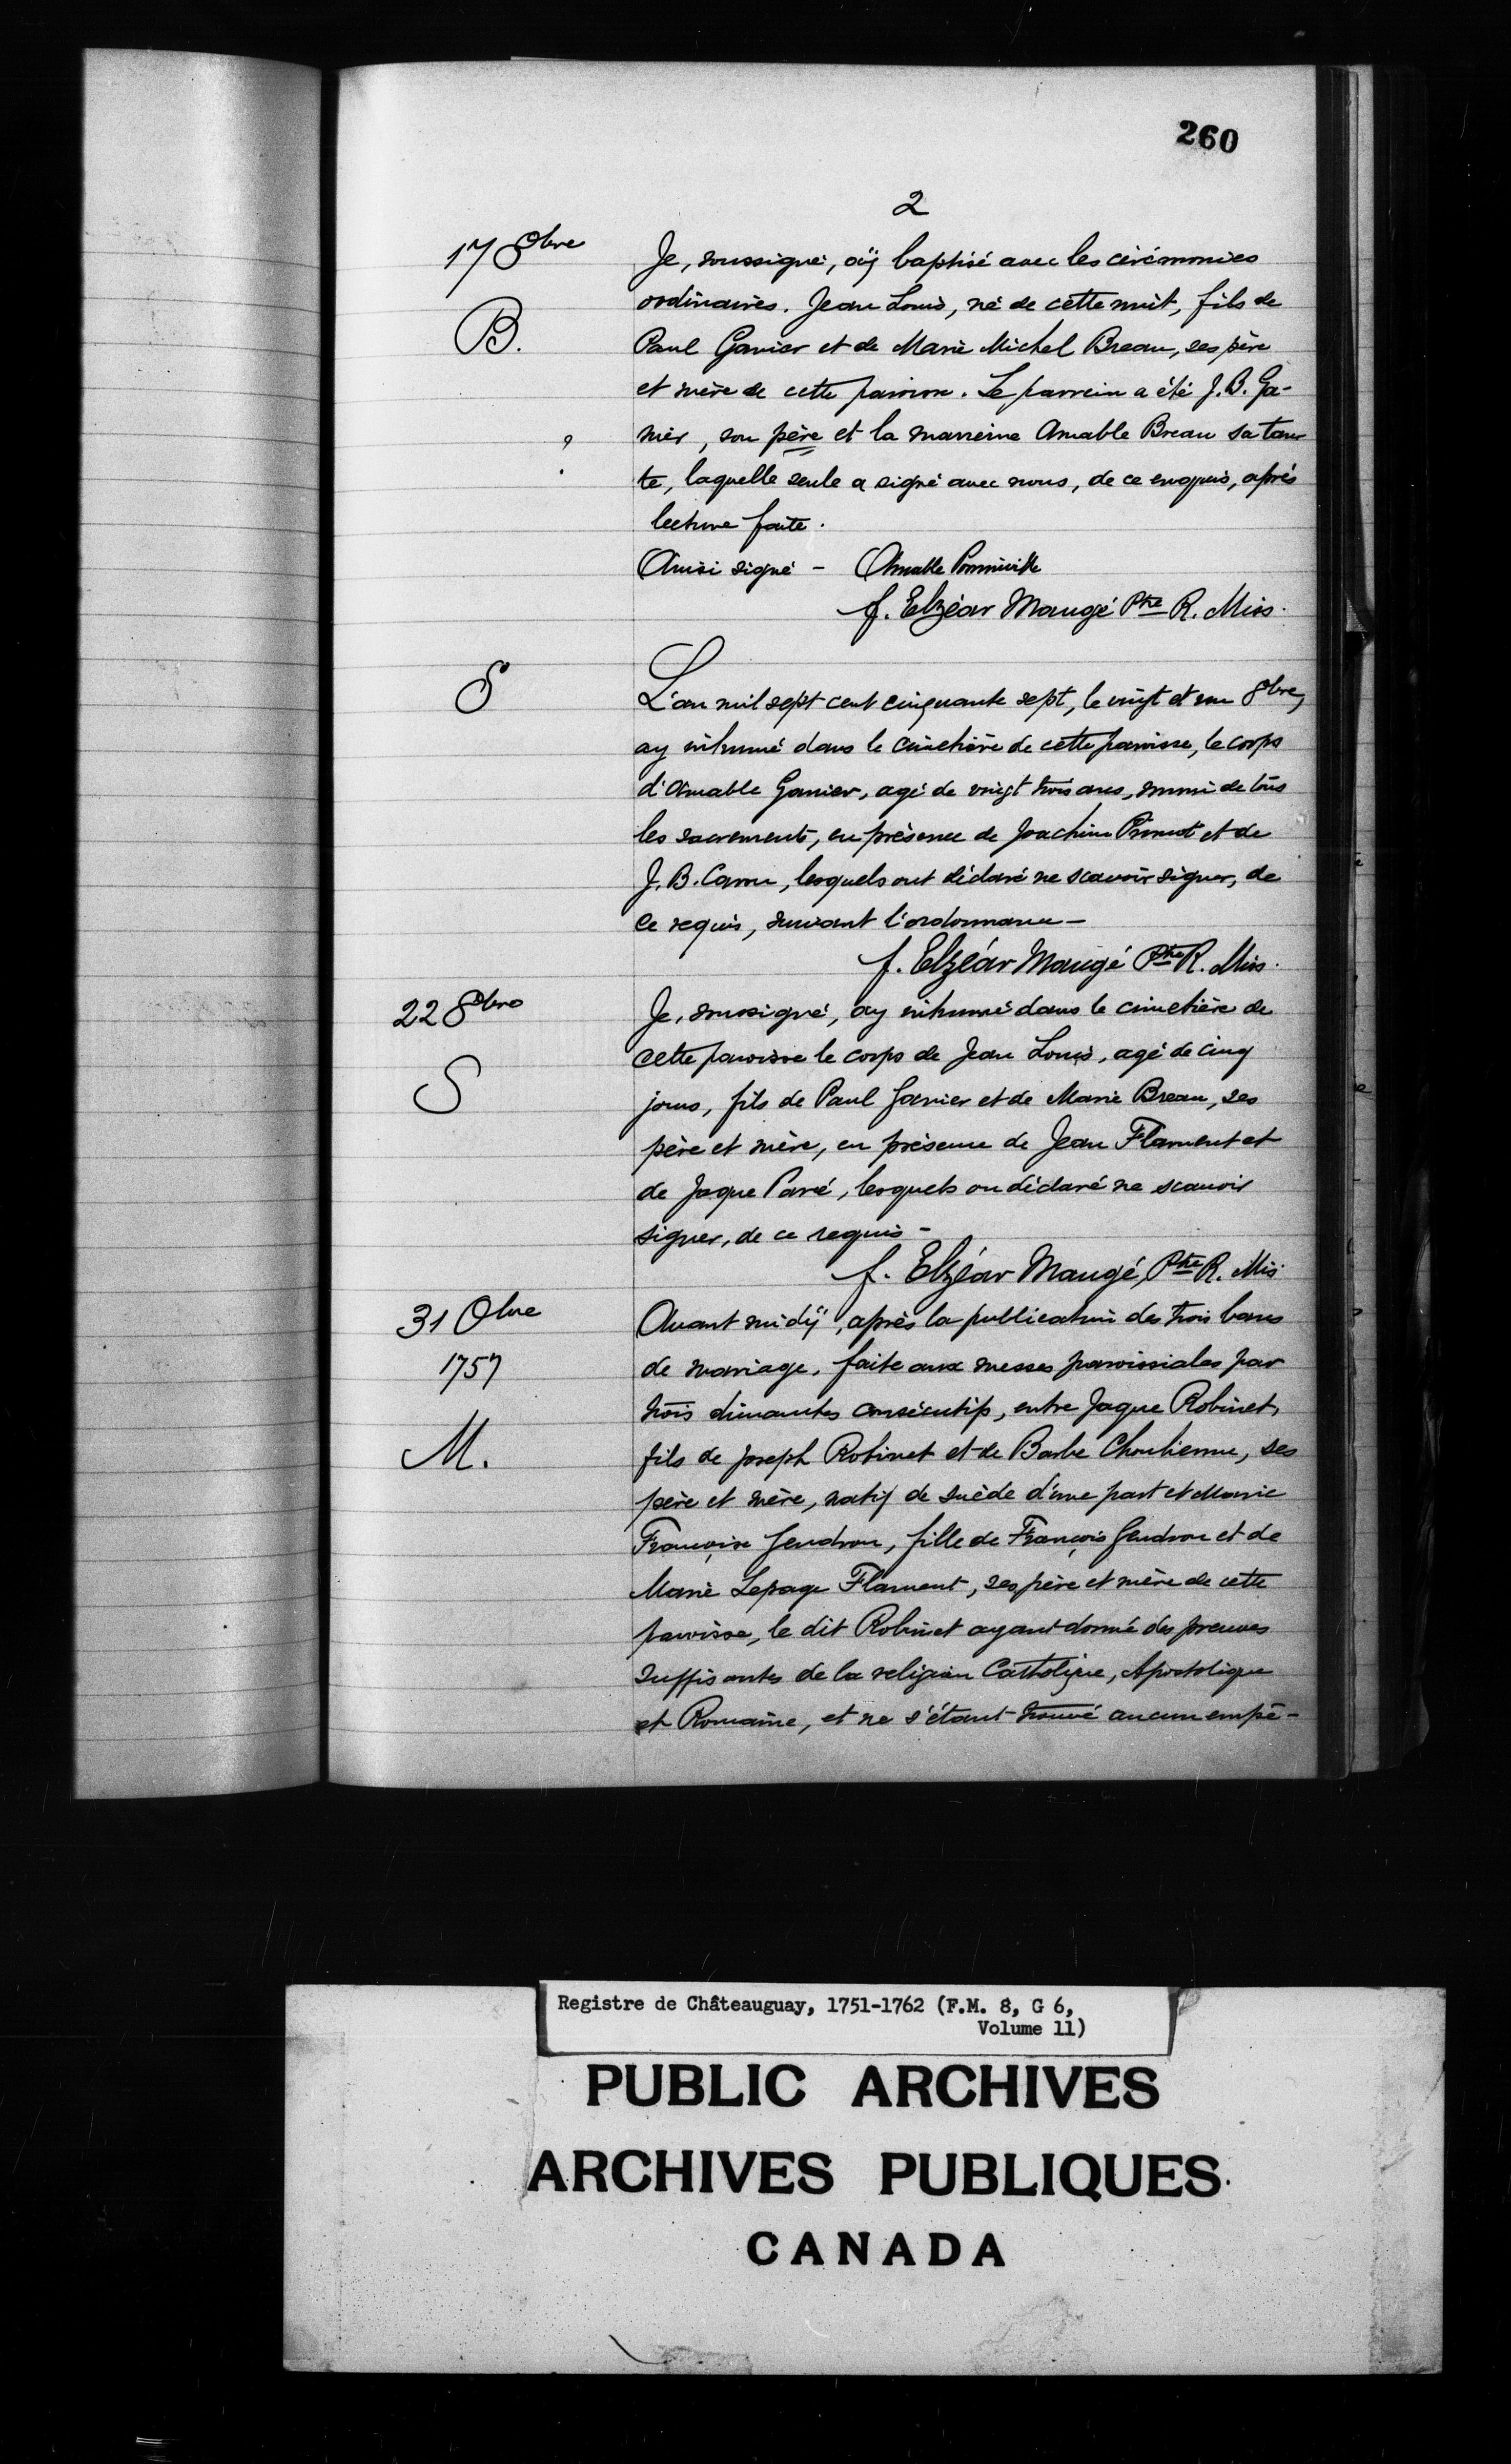 260
2
17 8bre
B.
Je, soussigné, aÿ baptisé avec les cérémonies
ordinaires. Jean Louis, né de cette nuit, fils de
Paul Ganier et de Marie Michel Breau, ses père
et mère de cette paroisse. Le parrein a été J. B. Ga-
? nier, son père et la marreine Amable Breau sa tan-
te, laquelle seule a signé avec nous, de ce enquis, après
lecture faite.
Ainsi signé - Amable Pomminville
f. Elzéar Maugé Ptre R. Miss.
S
L'an mil sept cent cinquante sept, le vingt et un 8bre,
ay inhumé dans le cimetière de cette paroisse, le corps
d'Amable Ganier, agé de vingt trois ans, muni de tous
les sacrements, en présence de Joachim Primot et de
J. B. Caron, lesquels ont déclaré ne scavoir signer, de
ce requis, suivant l'ordonnance -
f. Elzéar Maugé Ptre R. Miss.
22 8bre
S
Je, soussigné, ay inhumé dans le cimetière de
cette paroisse le corps de Jean Louis, agé de cinq
jours, fils de Paul Ganier et de Marie Breau, ses
père et mère, en présence de Jean Flament et
de Jaque Paré, lesquels on déclaré ne scauoir
signer, de ce requis -
f. Elzéar Maugé, Ptre R. Mis.
31 Obre
1757
M.
Avant midÿ, après la publication des trois bans
de mariage, faite aux messes paroissiales par
trois dimanches consécutifs, entre Jaque Robinet,
fils de Joseph Robinet et de Barbe , ses
père et mère, natif de suède d'une part et Marie
Françoise Gendron, fille de François Gendron et de
Marie Lepage Flament, ses père et mère de cette
paroisse, le dit Robinet ayant donné des preuves
suffisantes de la religion Catholique, Apostolique
et Romaine, et ne s'étant trouvé aucun empê-
Registre de Châteauguay, 1751-1762 (F.M. 8, G 6,
Volume 11)
PUBLIC ARCHIVES
ARCHIVES PUBLIQUES
CANADA